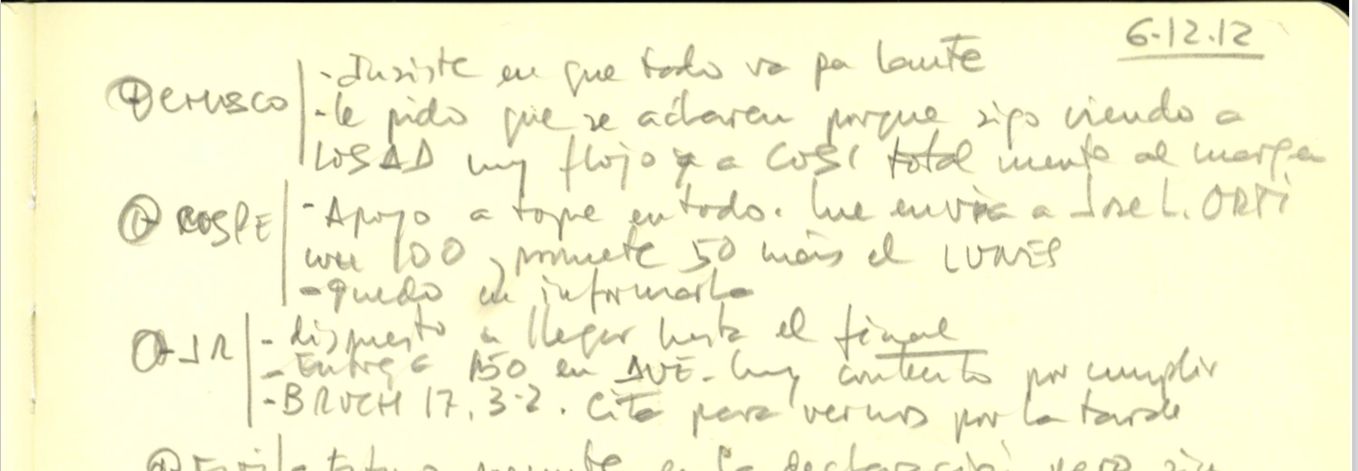 6-12.12
CHUSCO - Insiste en que todo va pa lante
- le pido que se aclaren porque sigo viendo a
LOSAD muy flojo y a COSI total mente al margen
COSPE - Apoyo a tope en todo. Me envia a Jose L. ORTI
con 100, promete 50 más el LUNES
- quedo en informarla
- dispuesto a llegar hasta el final
- Entrega 150 en AVE. Muy contento por cumplir
- BRUCH 17, 3-2. Cita para vernos por la tarde
en la declaración pero